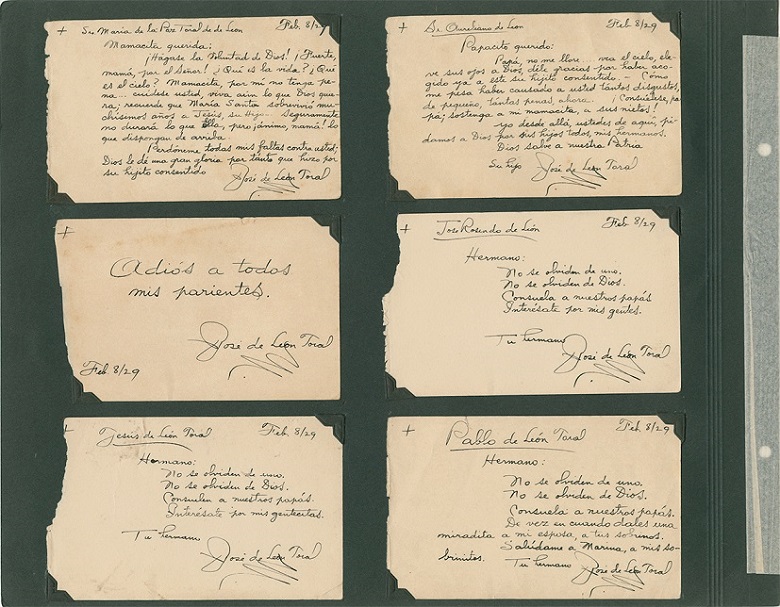 + Sra María de la Paz Toral de de León Feb. 8/29
Mamacita querida:
¡Hágase la Voluntad de Dios! ¡Fuerte,
mamá, por el Señor! ¿Qué es la vida? ¿Qué
es el cielo? Mamacita, por mí no tenga pe-
na... cuídese usted, viva aún lo que Dios quie-
ra; recuerde que María Santísa sobrevivió mu-
chísimos años a Jesús, su Hijo... Seguramente
no durará lo que Ella, pero ¡ánimo, mamá! lo
que dispongan de arriba.
Perdóneme todas mis faltas contra usted;
Dios le dé una gran gloria por tanto que hizo por
su hijito consentido
José de León Toral
+ Sr. Aureliano de León Feb. 8/29
Papacito querido:
Papá, no me llore... vea el cielo, ele-
ve sus ojos a Dios, déle gracias por haber aco-
gido ya a este su hijito consentido. - Cómo
me pesa haber causado a usted tantos disgustos,
de pequeño, tantas penas, ahora. ¡Consuélese, pa-
pá; sostenga a mi mamacita, a sus nietos!
yo desde allá, ustedes de aquí, pi-
damos a Dios por sus hijos todos, mis hermanos.
Dios salve a nuestra Patria
Su hijo José de León Toral
+
Adiós a todos
mis parientes.
José de León Toral
Feb. 8/29
+ José Rosendo de León Feb. 8/29
Hermano:
No se olviden de uno.
No se olviden de Dios.
Consuela a nuestros papás
Interésate por mis gentes.
Tu hermano
José de León Toral
+ Jesús de León Toral Feb. 8/29
Hermano:
No se olviden de uno.
No se olviden de Dios.
Consuelen a nuestros papás.
Interésate por mis gentecitas.
Tu hermano
José de León Toral
+ Pablo de León Toral Feb. 8/29
Hermano:
No se olviden de uno.
No se olviden de Dios.
Consuela a nuestros papás.
De vez en cuando dales una
miradita a mi esposa, a tus sobrinos.
Salúdame a Marina, a mis so-
brinitos. Tu hermano José de León Toral